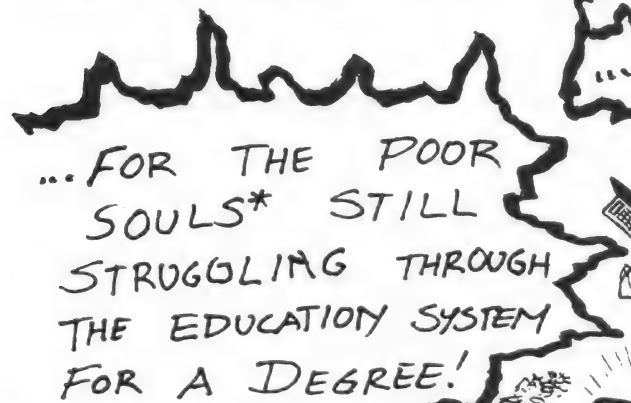 ...FOR THE POOR
SOULS* STILL
STRUGGLING THROUGH
THE EDUCATION SYSTEM
FOR A DEGREE!